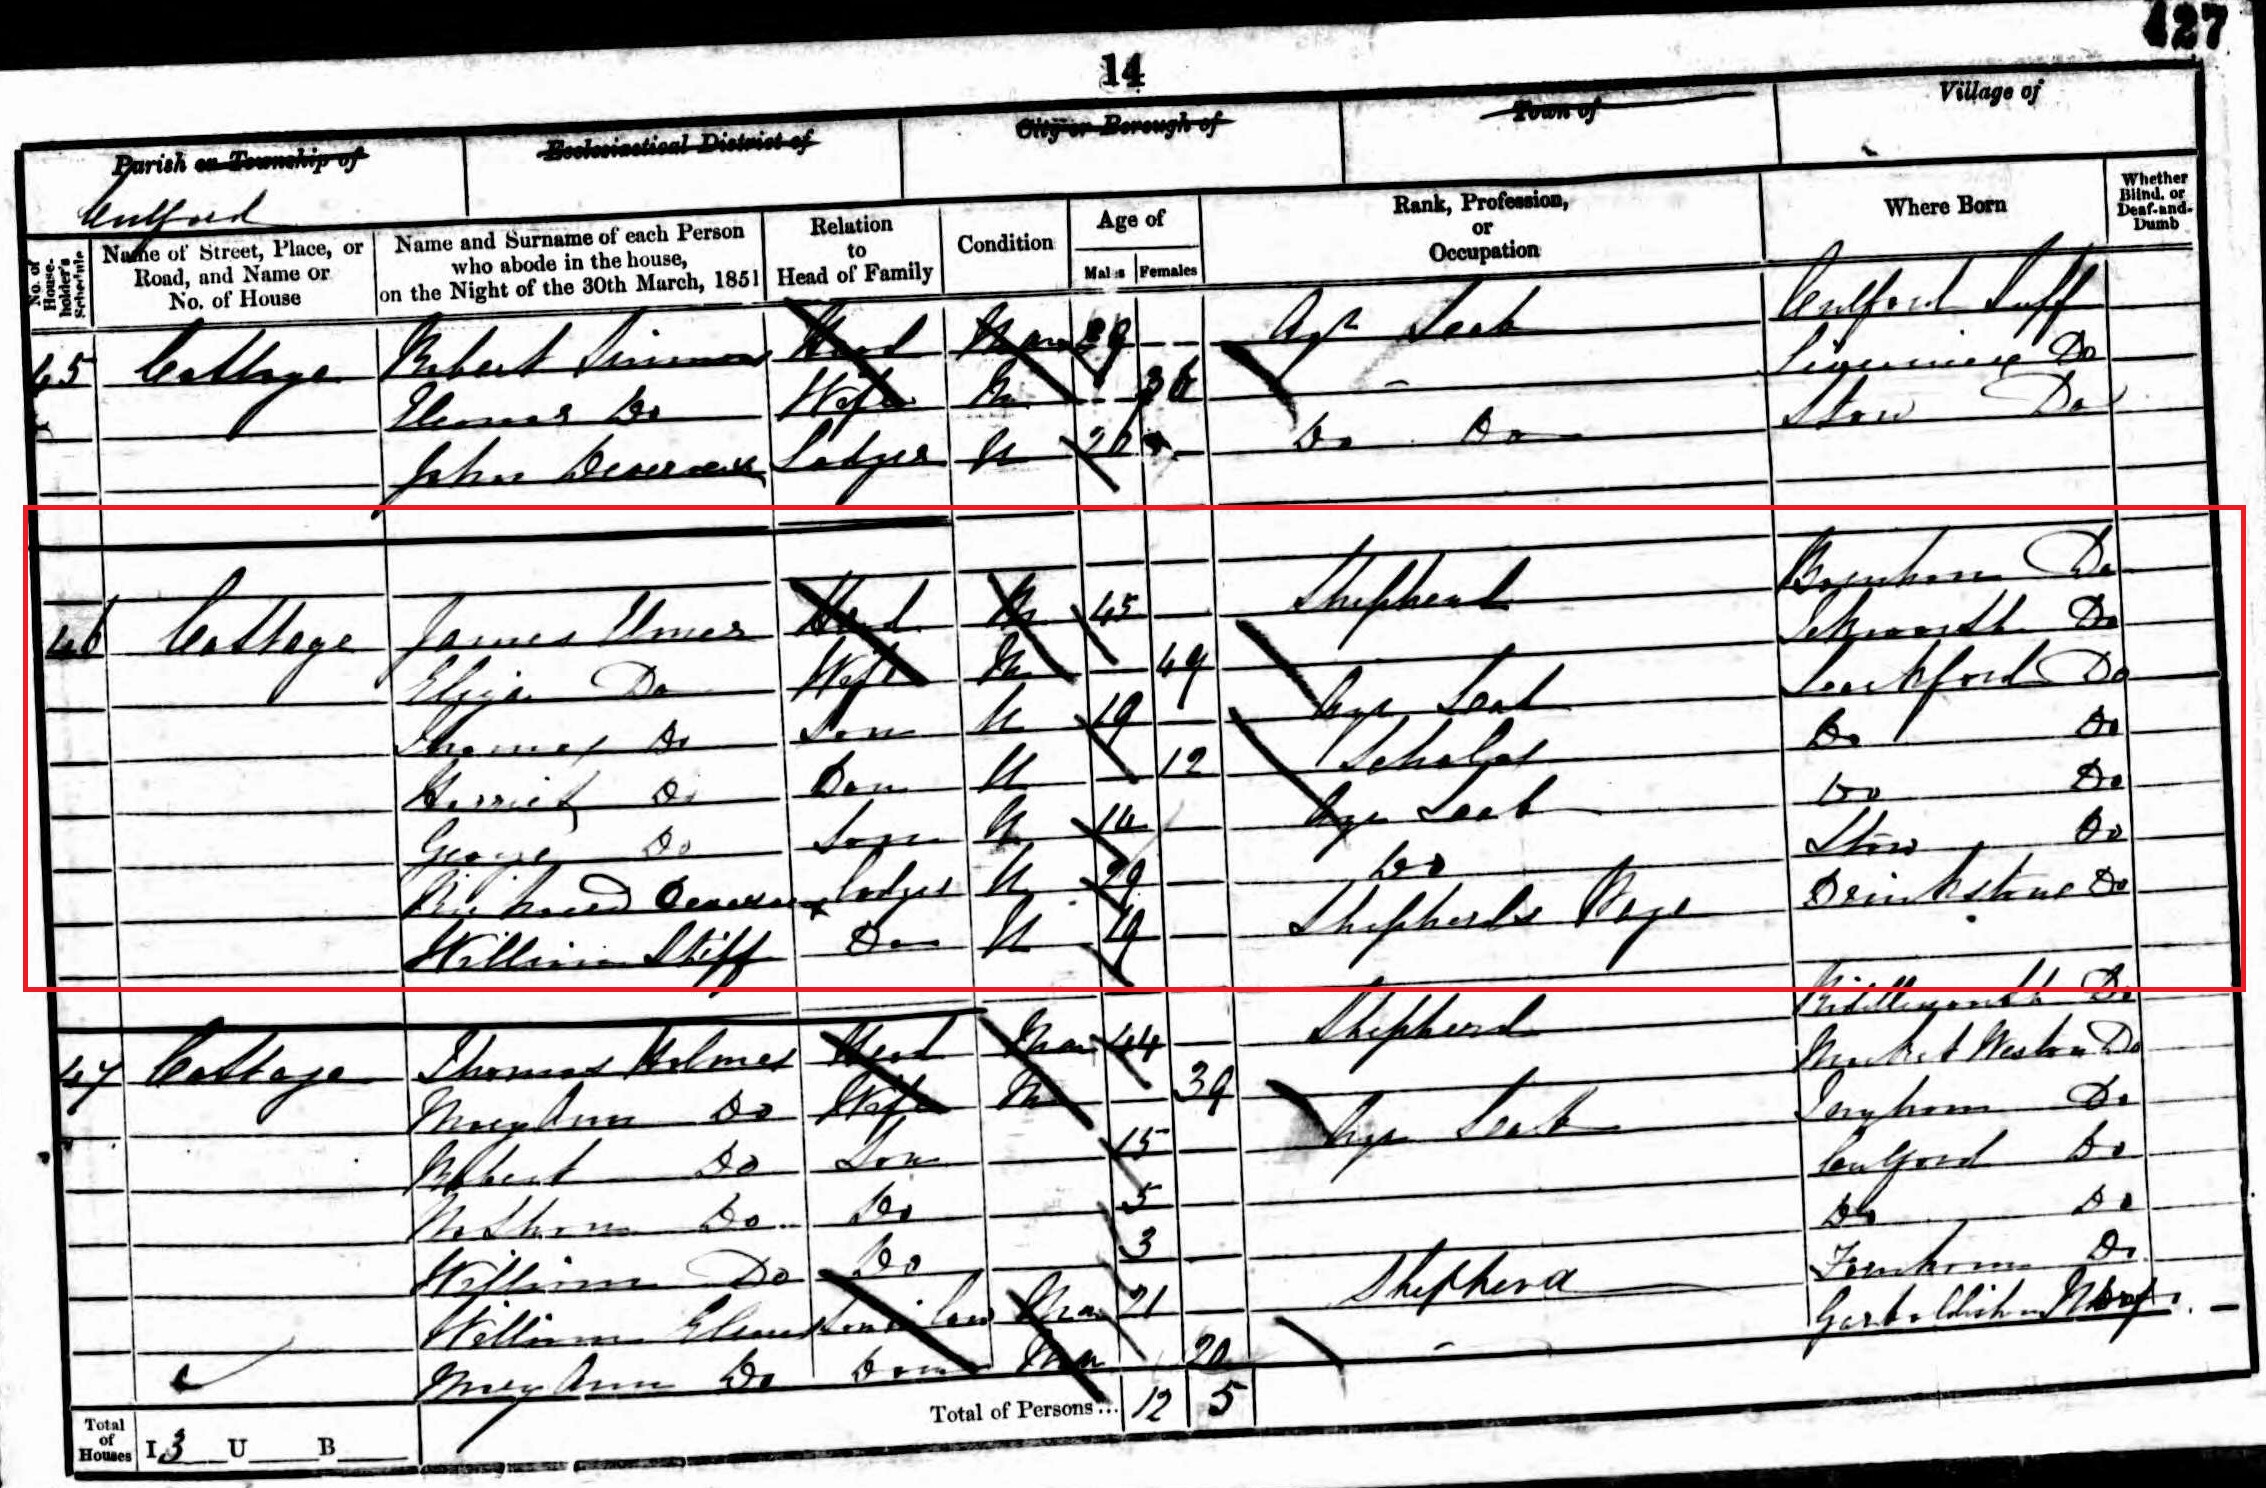 427
14
Parish or Township of
Ecclesiastical District of
City or Borough of
Town of
Village of
Culford
No. of House-holder's Schedule
Name of Street, Place, or Road, and Name or No. of House
Name and Surname of each Person who abode in the house, on the Night of the 30th March, 1851
Relation to Head of Family
Condition
Age of
Males
Females
Rank, Profession, or Occupation
Where Born
Whether Blind, or Deaf-and-Dumb
45 Cottage Robert Head Mar 39 Agr Lab Culford Suff
Do Wife M 36 Livermere Do
John Lodger U Do Do Stow Do
46 Cottage James Head M 45 Shepherd Do
Eliza Do Wife M 49 Do
Thomas Do Son U 19 Agr Lab Lackford Do
Harriet Do Daur U 12 Scholar Do Do
George Do Son U 14 Agr Lab Do Do
Richard Lodger U Do Stow Do
William Stiff Do U 19 Shepherds Page Drinkstone Do
47 Cottage Thomas Holmes Head Mar 44 Shepherd Riddlesworth Do
Mary Ann Do Wife M 39 Market Weston Do
Robert Do Son 15 Agr Lab Ingham Do
Do Do 5 Culford Do
William Do Do 3 Do Do
William Son in law Mar 21 Shepherd Do
Mary Ann Do Daur Mar 20 Garboldisham Norf
Total of Houses I 3 U B
Total of Persons... 12 5